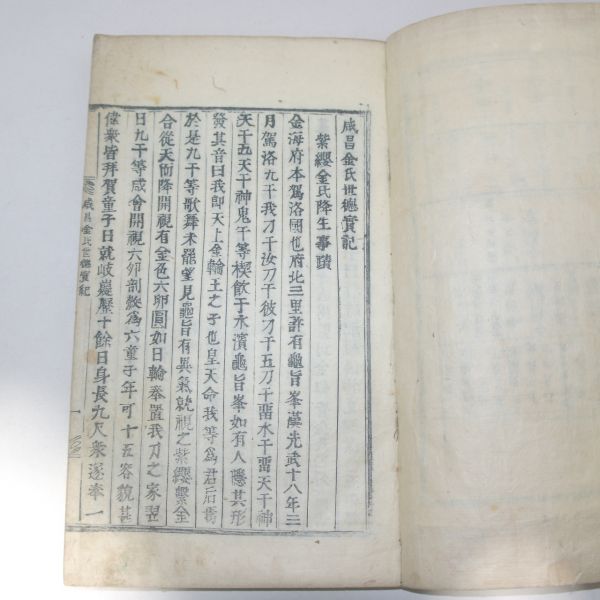 咸昌金氏世德實記
紫纓金氏降生事蹟
金海府本駕洛國也府北三里許有龜旨峯漢光武十八年三
月駕洛九干我刀干汝刀干彼刀干五刀干留水干留天干神
天干五天干神鬼干等禊飮于水濱龜旨峯如有人隱其形
發其音曰我卽天上金輪王之子也皇天命我等爲君后焉
於是九干等歌舞未罷望見龜旨有異氣就視之紫纓繫金
合從天而降開視有金色六卵圓如日輪奉置我刀之家翌
日九干等咸會開視六卵剖經爲六童子年可十五容貌甚
偉衆皆拜賀童子日就岐嶷歷十餘日身長九尺衆遂奉一
咸昌金氏世德實紀
一